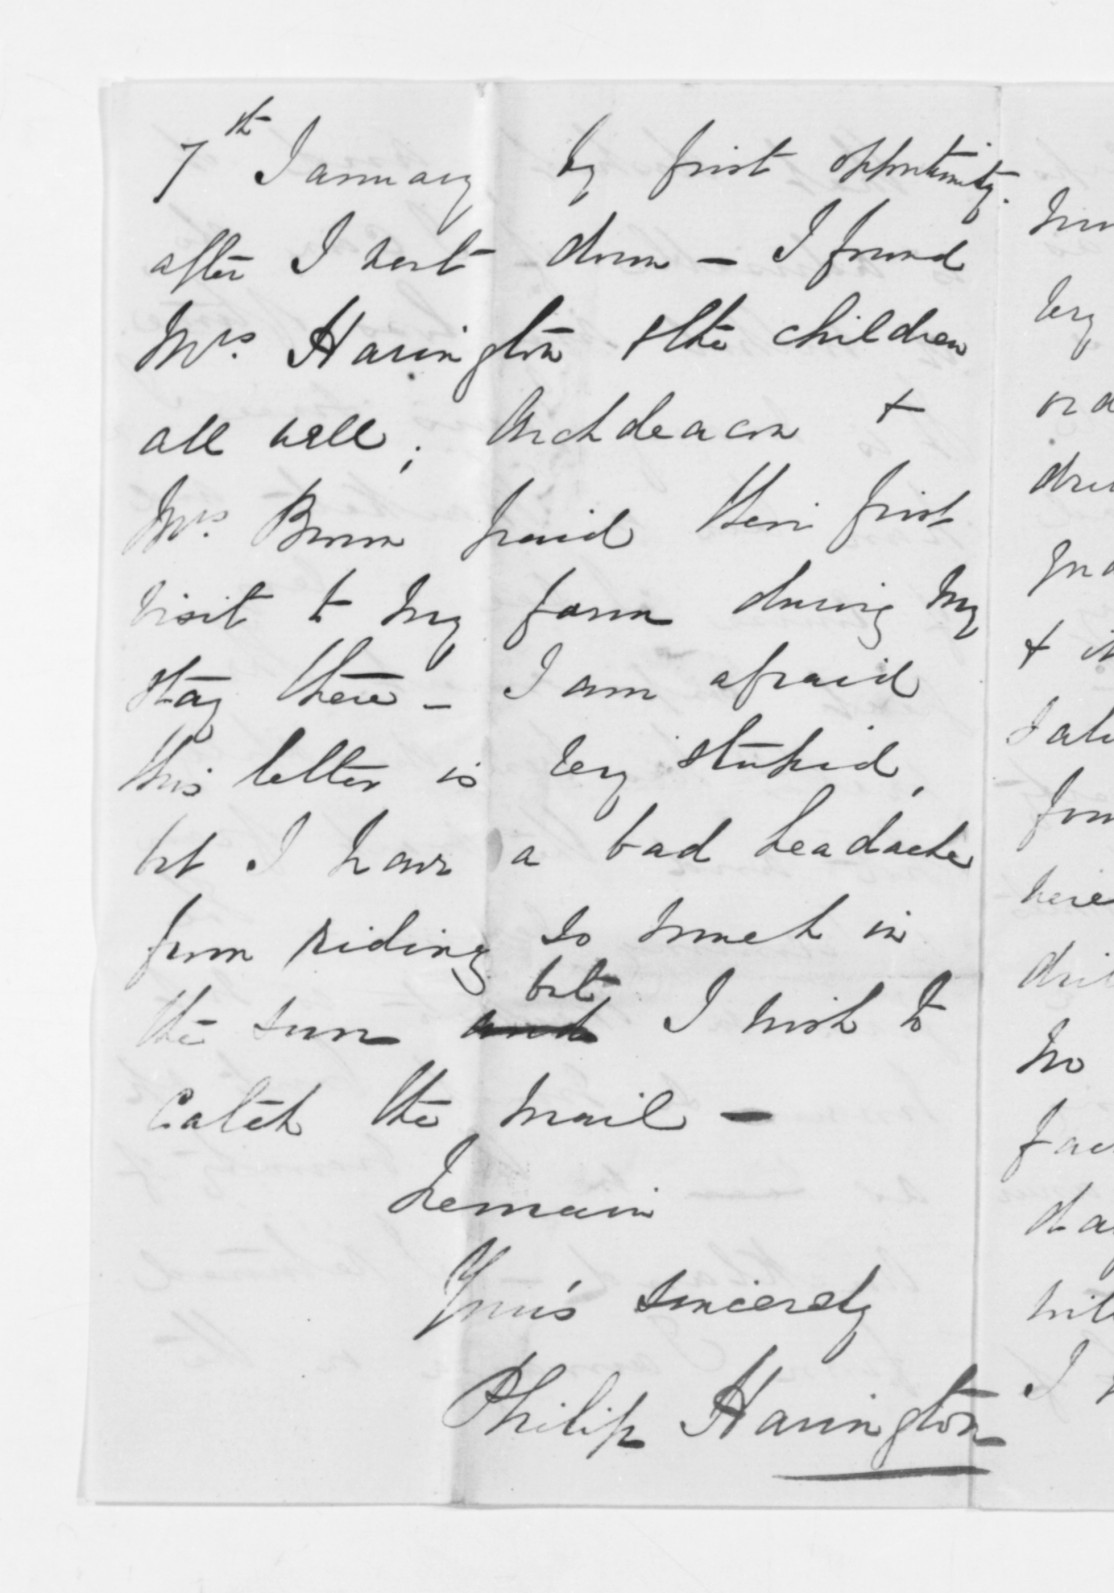 7th January by first opportunity.
after I went down — I found
Mrs. Harington & the children
all well; Archdeacon &
Mrs. Brown paid their first
visit to my farm during my
stay there — I am afraid
this letter is very stupid,
but I have a bad headache
from riding so much in
the sun but I wish to
catch the mail —
remain
Your's sincerely
Philip Harington
by
&
no
I